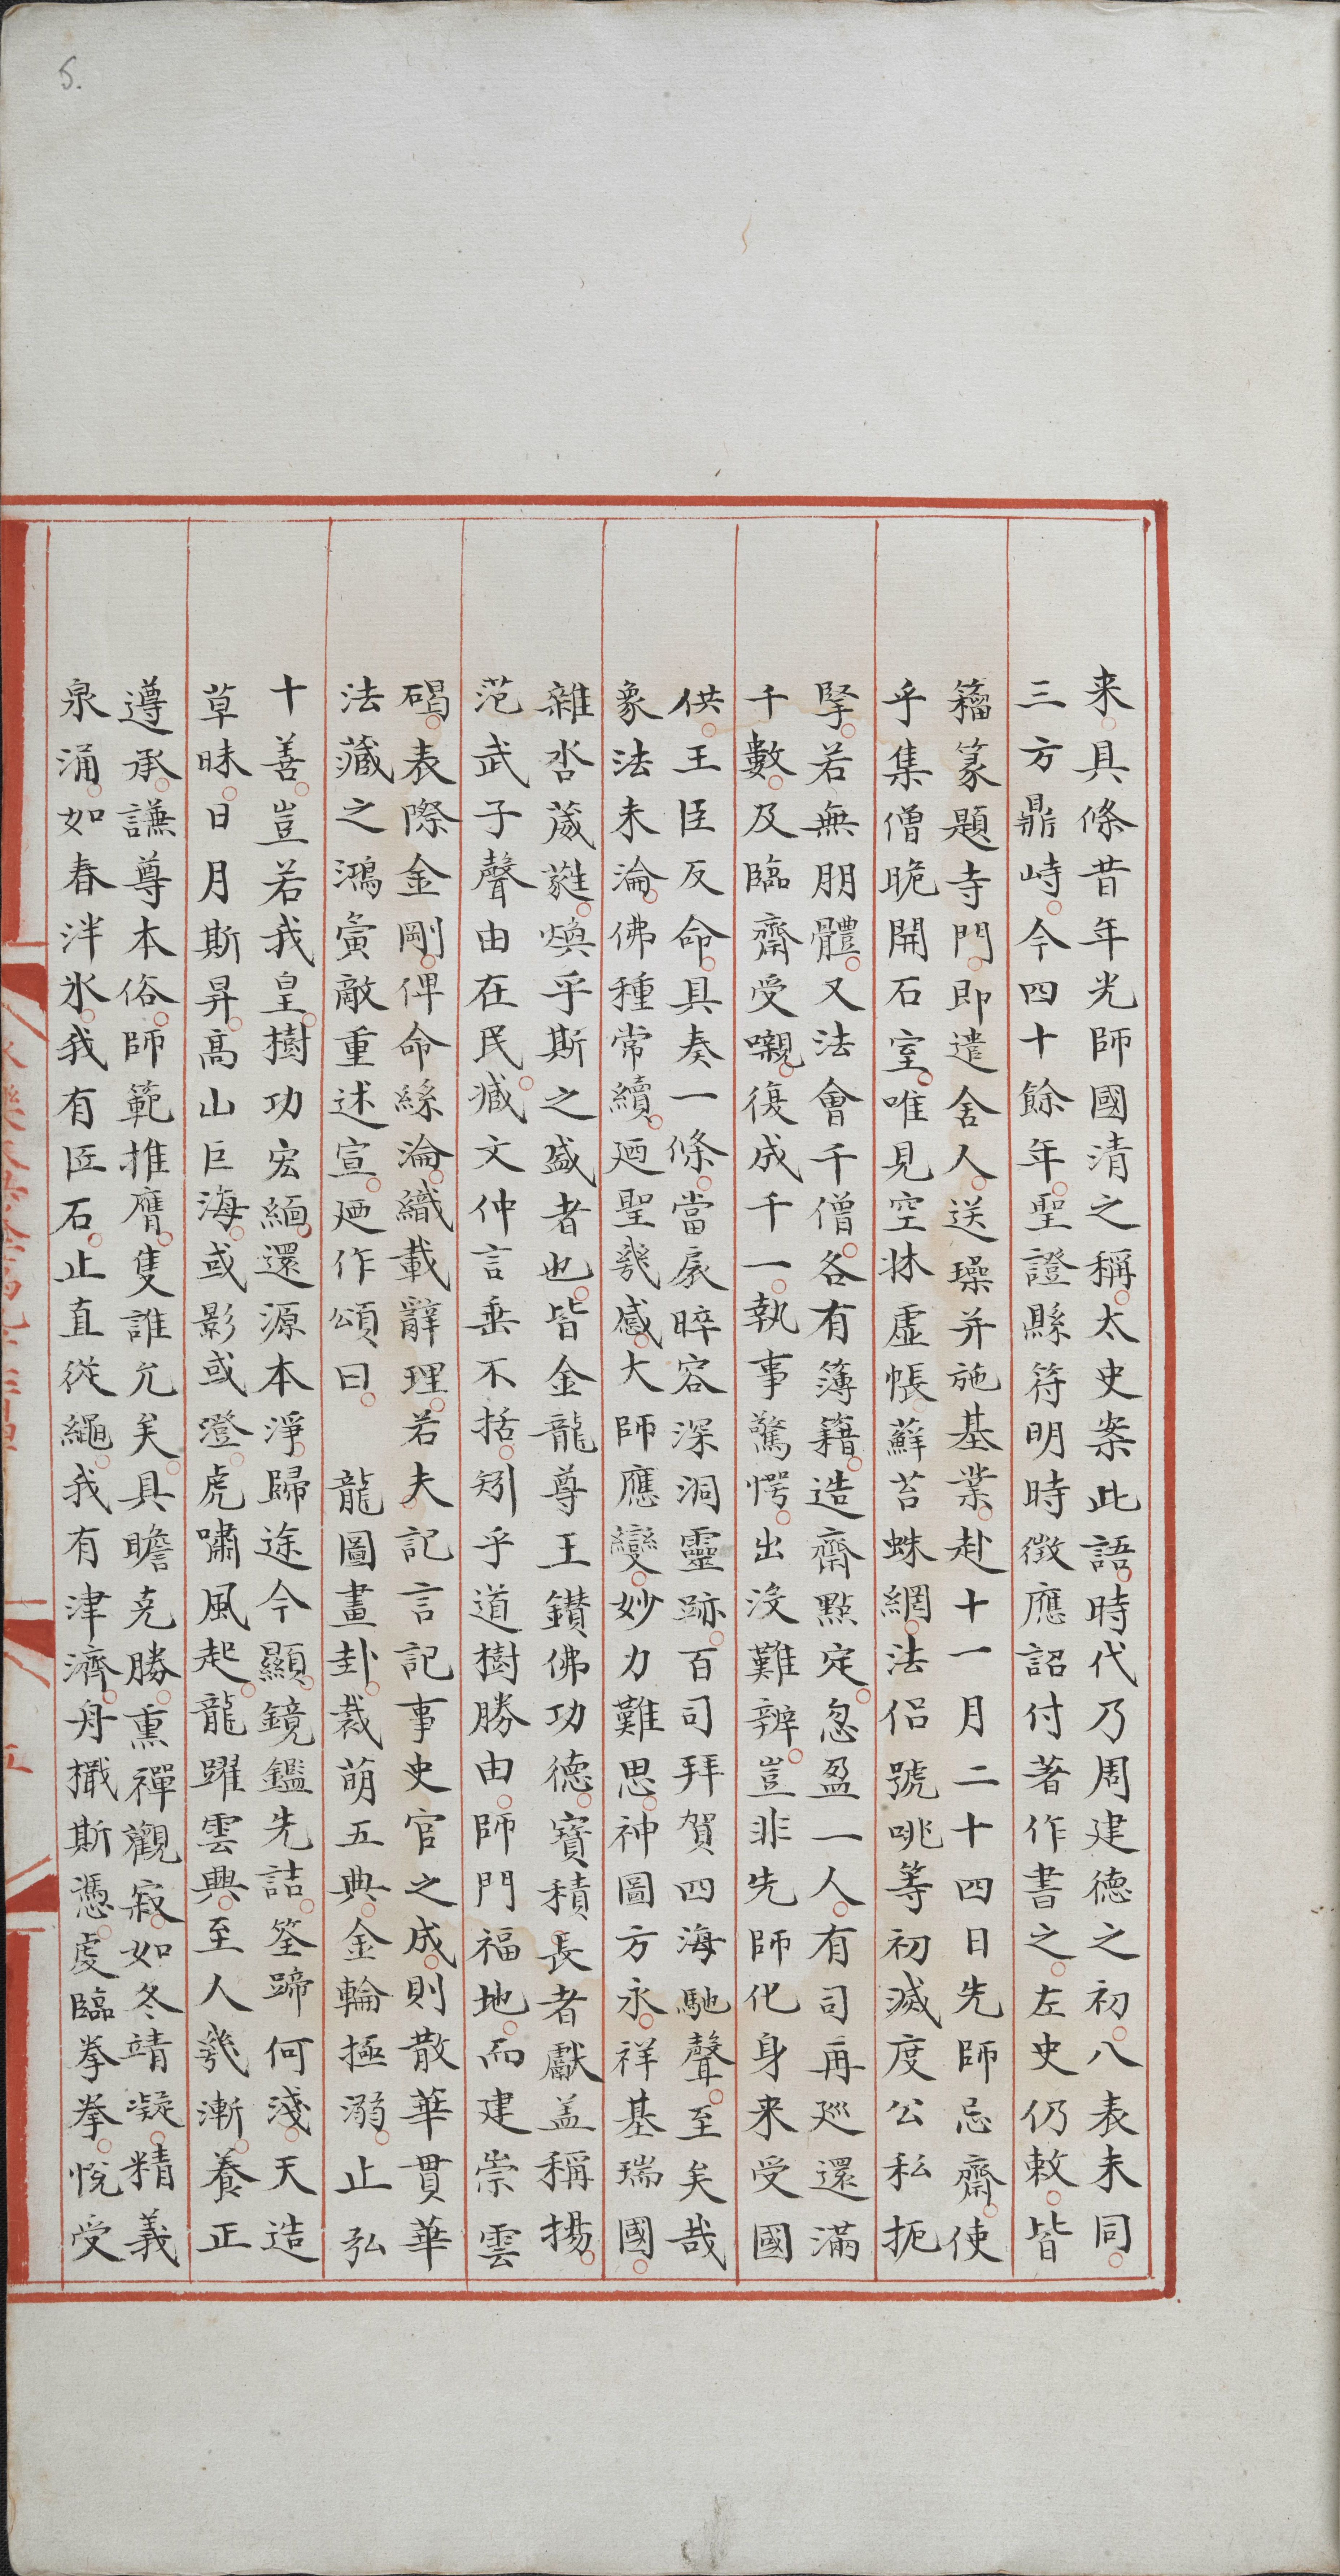 5.
来具條昔年光師國清之稱太史案此語時代乃周建德之初八表未同
三方鼎峙今四十餘年聖證縣符明時徵應詔付著作書之左史仍敕皆
籀篆題寺門即遣舍人送璪并施基業赴十一月二十四日先師忌齋使
乎集僧晚開石室唯見空牀虛帳蘚苔蛛網法侶號咷等初滅度公私扼
掔若無朋體又法會千僧各有簿籍造齋點定忽盈一人有司再巡還滿
千數及臨齋受嚫復成千一執事驚愕出沒難辨豈非先師化身来受國
供王臣反命具奏一條當扆晬容深洞靈跡百司拜賀四海馳聲至矣哉
象法未淪佛種常續廼聖幾感大師應變妙力難思神圖方永祥基瑞國
雜沓葳蕤煥乎斯之盛者也皆金龍尊王鑚佛功德寶積長者獻盖稱揚
范武子聲由在民臧文仲言垂不括矧乎道樹勝由師門福地而建崇雲
碣表際金剛俾命絲淪織載辭理若夫記言記事史官之成則散華貫華
法藏之鴻寶敵重述宣廼作頌曰 龍圖畫卦裁萌五典金輪極溺止弘
十善豈若我皇樹功宏緬還源本淨歸途今顯鏡鑑先詰筌蹄何淺天造
草昧日月斯昇高山巨海或影或澄虎嘯風起龍躍雲興至人幾漸養正
遵承謙尊本俗師範推膺隻誰允矣具瞻克勝熏禪觀寂如冬靖凝精義
泉涌如春泮氷我有匠石止直從繩我有津濟舟檝斯憑虔臨拳拳悅受
五